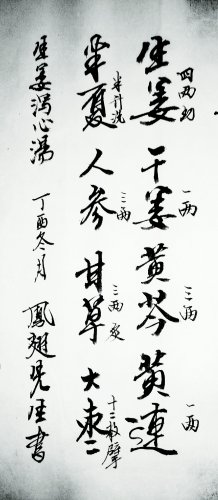 生姜四两切干姜一两黄芩三两黄連一两
半夏半升洗人参三两甘草三两炙大枣十二枚擘
生姜泻心湯 丁酉冬月 鳳翅 生書